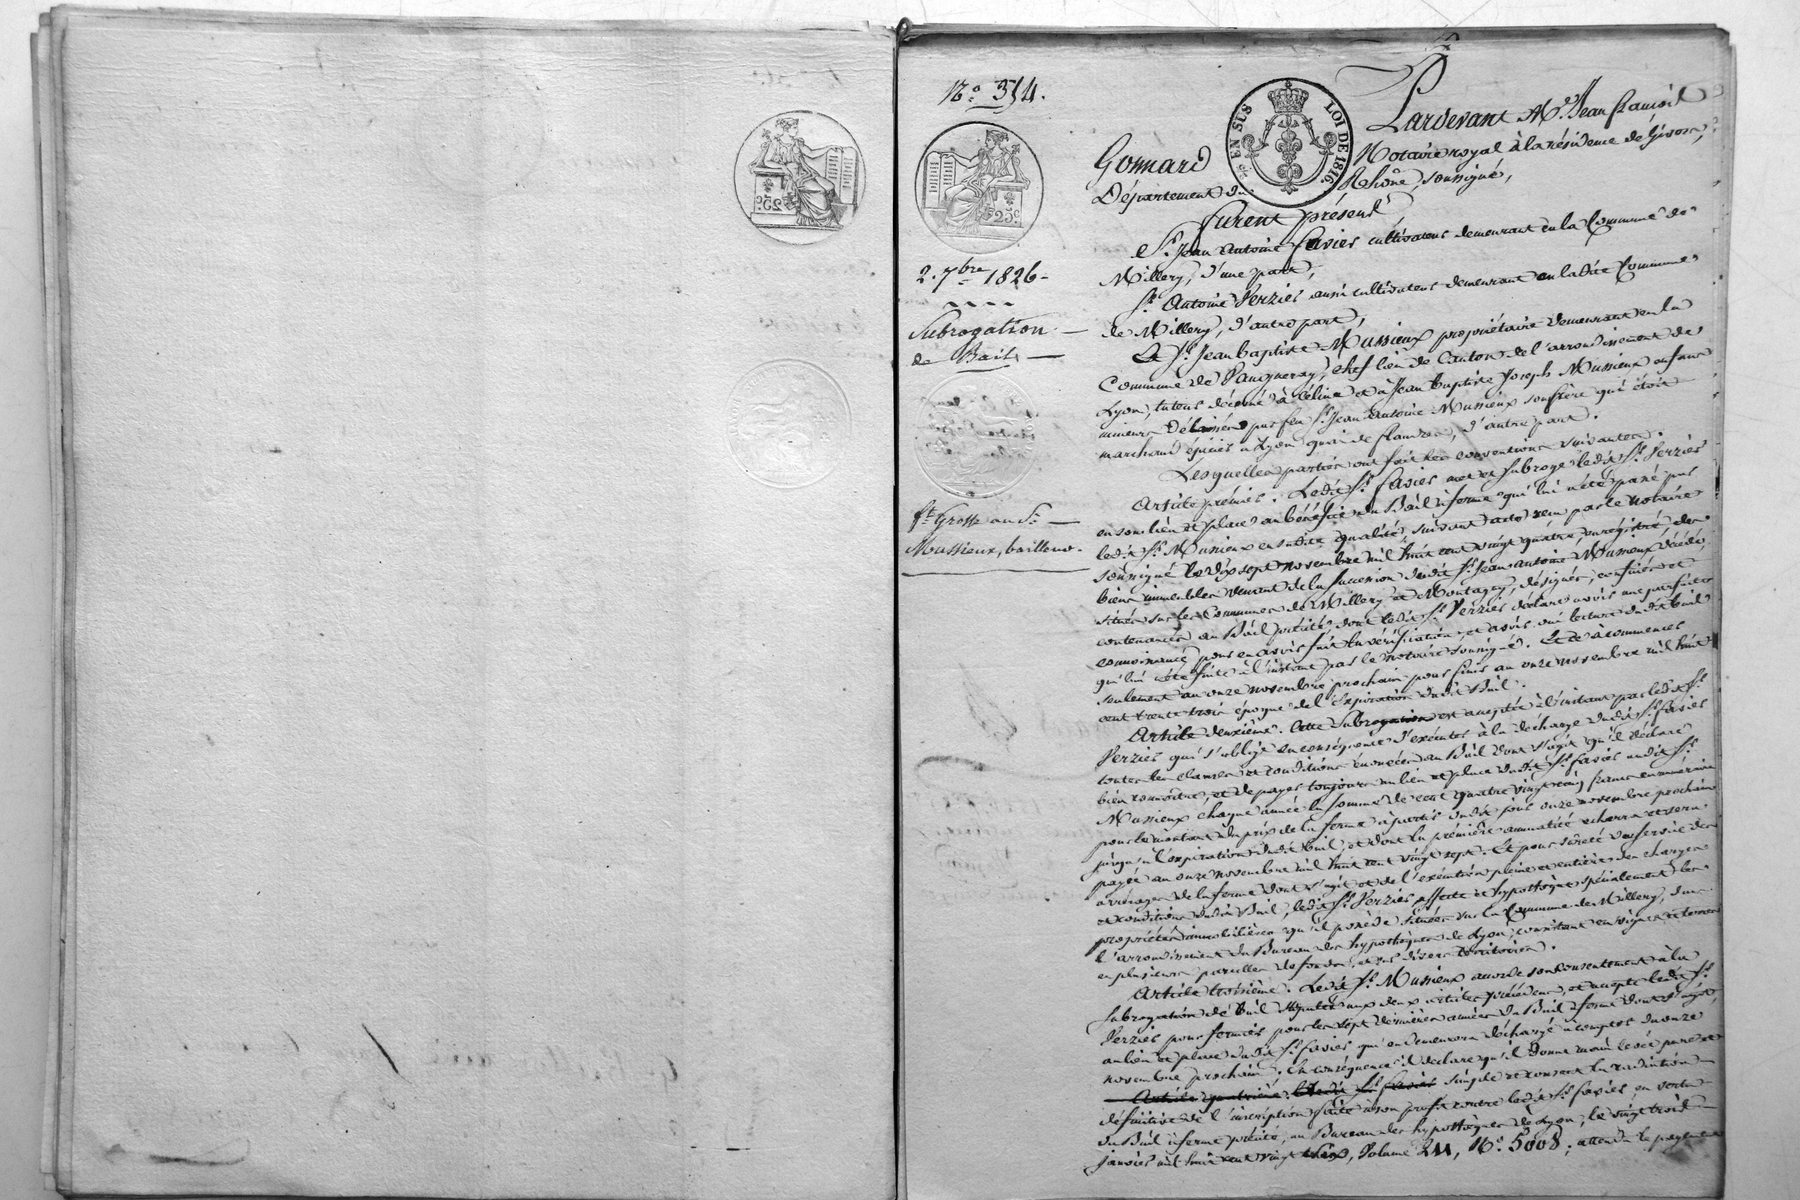 N.o 354.
EN SUS
LOI DE 1816.
25c
25c
2. 7bre 1826 -
Subrogation
de Bail
fte Grosse au Sr.
Mussieux, bailleur.
Pardevant Me. Jean François
Gonnard Notaire royal à la résidence de Givors,
Département du Rhône, soussigné,
Furent présents
Sr. Jean Antoine Favier cultivateur demeurant en la Commune de
Millery, d'une part,
Sr. Antoine Verzier aussi cultivateur demeurant en ladite Commune
de Millery, d'autre part,
Et Sr. Jean Baptiste Mussieux propriétaire demeurant en la
Commune de Vaugneray, chef lieu de Canton de l'arrondissement de
Lyon, tuteur décerné à Céline et à Jean Baptiste Joseph Mussieux enfans
mineurs Délaissés par feu Sr. Jean Antoine Mussieux son frère qui étoit
marchand épicier à Lyon quai de Flandres, d'autre part.
Lesquelles parties ont fait les conventions suivantes.
Article premier. Ledit Sr. Favier met et subroge ledit Sr. Verzier
en son lieu et place au bénéfice du Bail à ferme qui lui a été passé par
ledit Sr. Mussieux en sadite qualité, suivant acte reçu par le notaire
soussigné le dix sept novembre mil huit cent vingt quatre, enregistré, des
biens immeubles venant de la succession dudit Sr. Jean Antoine Mussieux décédé,
situés sur les Communes de Millery et Montagny, désignés, confinés et
contenancés au Bail précité dont ledit Sr. Verzier déclare avoir une parfaite
connoissance pour en avoir fait la vérification et avoir oui lecture dudit bail
qui lui a été faite à l'instant par le notaire soussigné. Et ce à commencer
seulement au onze novembre prochain pour finir au onze novembre mil huit
cent trente trois époque de l'expiration dudit Bail.
Article deuxième. Cette Subrogation est acceptée à l'instant par ledit Sr.
Verzier qui s'oblige en conséquence d'exécuter à la décharge dudit Sr. Favier
toutes les clauses et conditions énoncées au Bail dont s'agit qu'il déclare
bien connoitre, et de payer toujours au lieu et place dudit Sr. Favier audit Sr.
Mussieux chaque année la somme de cent quatre vingt cinq francs en numéraire
pour le montant du prix de la ferme à partir dudit jour onze novembre prochain
jusqu'à l'expiration dudit bail, et dont la première annuité écherra et sera
payée au onze novembre mil huit cent vingt sept. Et pour sûreté du service des
arrérages de la ferme dont s'agit et de l'exécution pleine et entière des charges
et conditions dudit Bail, ledit Sr. Verzier affecte et hypothèque spécialement les
propriétés immobilières qu'il possède situées sur la Commune de Millery, dans
l'arrondissement du Bureau des hypothèques de Lyon, consistant en vignes et terres
en plusieurs parcelles de fonds, et sur divers territoires.
Article troisième. Ledit Sr. Mussieux accorde son consentement à la
Subrogation de bail stipulée aux deux articles précédens, et accepte ledit Sr.
Verzier pour fermier pour les sept dernières années du Bail à ferme dont s'agit,
au lieu et place dudit Sr. Favier qui en demeurera déchargé à compter du onze
novembre prochain. En conséquence il déclare qu'il donne main levée pure et
Article quatrième. Ledit Sr. Favier simple et consent la radiation
définitive de l'inscription faite à son profit contre ledit Sr. Favier, en vertu
du Bail à ferme précité, au Bureau des hypothèques de Lyon, le vingt trois
janvier mil huit cent vingt , Volume 211, No. 5008, attendu le payement